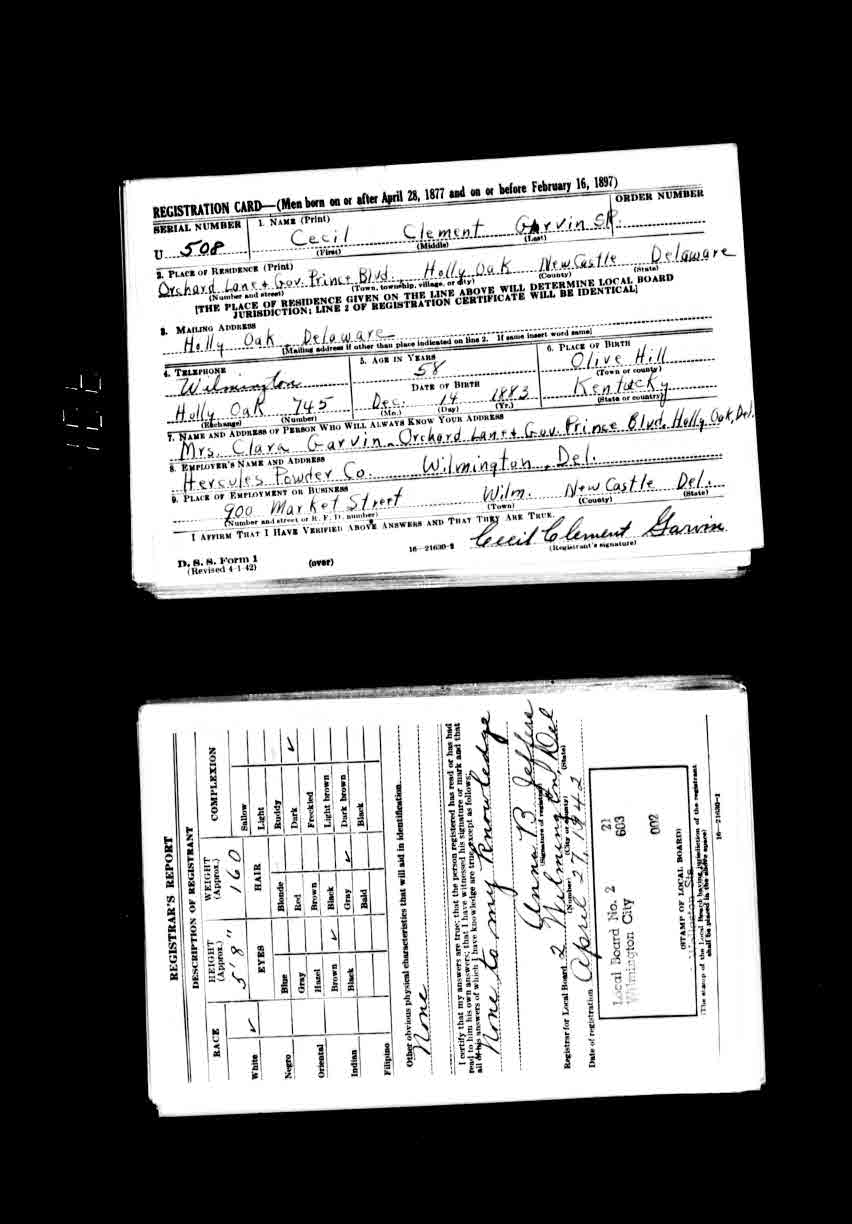 REGISTRATION CARD—(Men born on or after April 28, 1877 and on or before February 16, 1897)
SERIAL NUMBER 1. NAME (Print) ORDER NUMBER
U 508 Cecil Clement Garvin SR.
(First) (Middle) (Last)
2. PLACE OF RESIDENCE (Print)
Orchard Lane & Gov. Prince Blvd. Holly Oak New Castle Delaware
(Number and street) (Town, township, village, or city) (County) (State)
[THE PLACE OF RESIDENCE GIVEN ON THE LINE ABOVE WILL DETERMINE LOCAL BOARD
JURISDICTION; LINE 2 OF REGISTRATION CERTIFICATE WILL BE IDENTICAL]
3. MAILING ADDRESS
Holly Oak, Delaware
[Mailing address if other than place indicated on line 2. If same insert word same]
4. TELEPHONE 5. AGE IN YEARS 6. PLACE OF BIRTH
Wilmington 58 Olive Hill
(Town or county)
DATE OF BIRTH
Holly Oak 745 Dec. 14 1883 Kentucky
(Exchange) (Number) (Mo.) (Day) (Yr.) (State or country)
7. NAME AND ADDRESS OF PERSON WHO WILL ALWAYS KNOW YOUR ADDRESS
Mrs. Clara Garvin Orchard Lane & Gov. Prince Blvd. Holly Oak, Del.
8. EMPLOYER'S NAME AND ADDRESS
Hercules Powder Co. Wilmington, Del.
9. PLACE OF EMPLOYMENT OR BUSINESS
900 Market Street Wilm. New Castle Del.
(Number and street or R. F. D. number) (Town) (County) (State)
I AFFIRM THAT I HAVE VERIFIED ABOVE ANSWERS AND THAT THEY ARE TRUE.
Cecil Clement Garvin
D. S. S. Form 1 (Registrant's signature)
(Revised 4-1-42) (over) 16—21630-2
REGISTRAR'S REPORT
DESCRIPTION OF REGISTRANT
RACE HEIGHT (Approx.) WEIGHT (Approx.) COMPLEXION
5' 8" 160
White ✓ EYES HAIR Sallow
Light
Negro Blue Blonde Ruddy
Gray Red Dark ✓
Oriental Hazel Brown Freckled
Brown ✓ Black Light brown
Indian Black Gray ✓ Dark brown
Bald Black
Filipino
Other obvious physical characteristics that will aid in identification
None
I certify that my answers are true; that the person registered has read or has had
read to him his own answers; that I have witnessed his signature or mark and that
all of his answers of which I have knowledge are true, except as follows:
None to my knowledge
Anna B. Jeffers
(Signature of registrar)
Registrar for Local Board 2 Wilmington Del
(Number) (City or county) (State)
Date of registration April 27, 1942
Local Board No. 2 21
Wilmington City 603
002
(STAMP OF LOCAL BOARD)
(The stamp of the Local Board having jurisdiction of the registrant
shall be placed in the above space)
16—21630-1